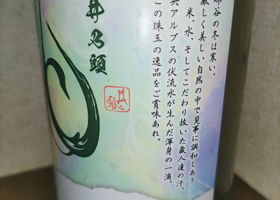 那谷の冬は寒い。
厳しく美しい自然の中で見事に調和しあう
米、水、そしてこだわり抜いた蔵人達の汗。
央アルプスの伏流水が生んだ渾身の一滴。
この珠玉の逸品をご賞味あれ。
井の頭